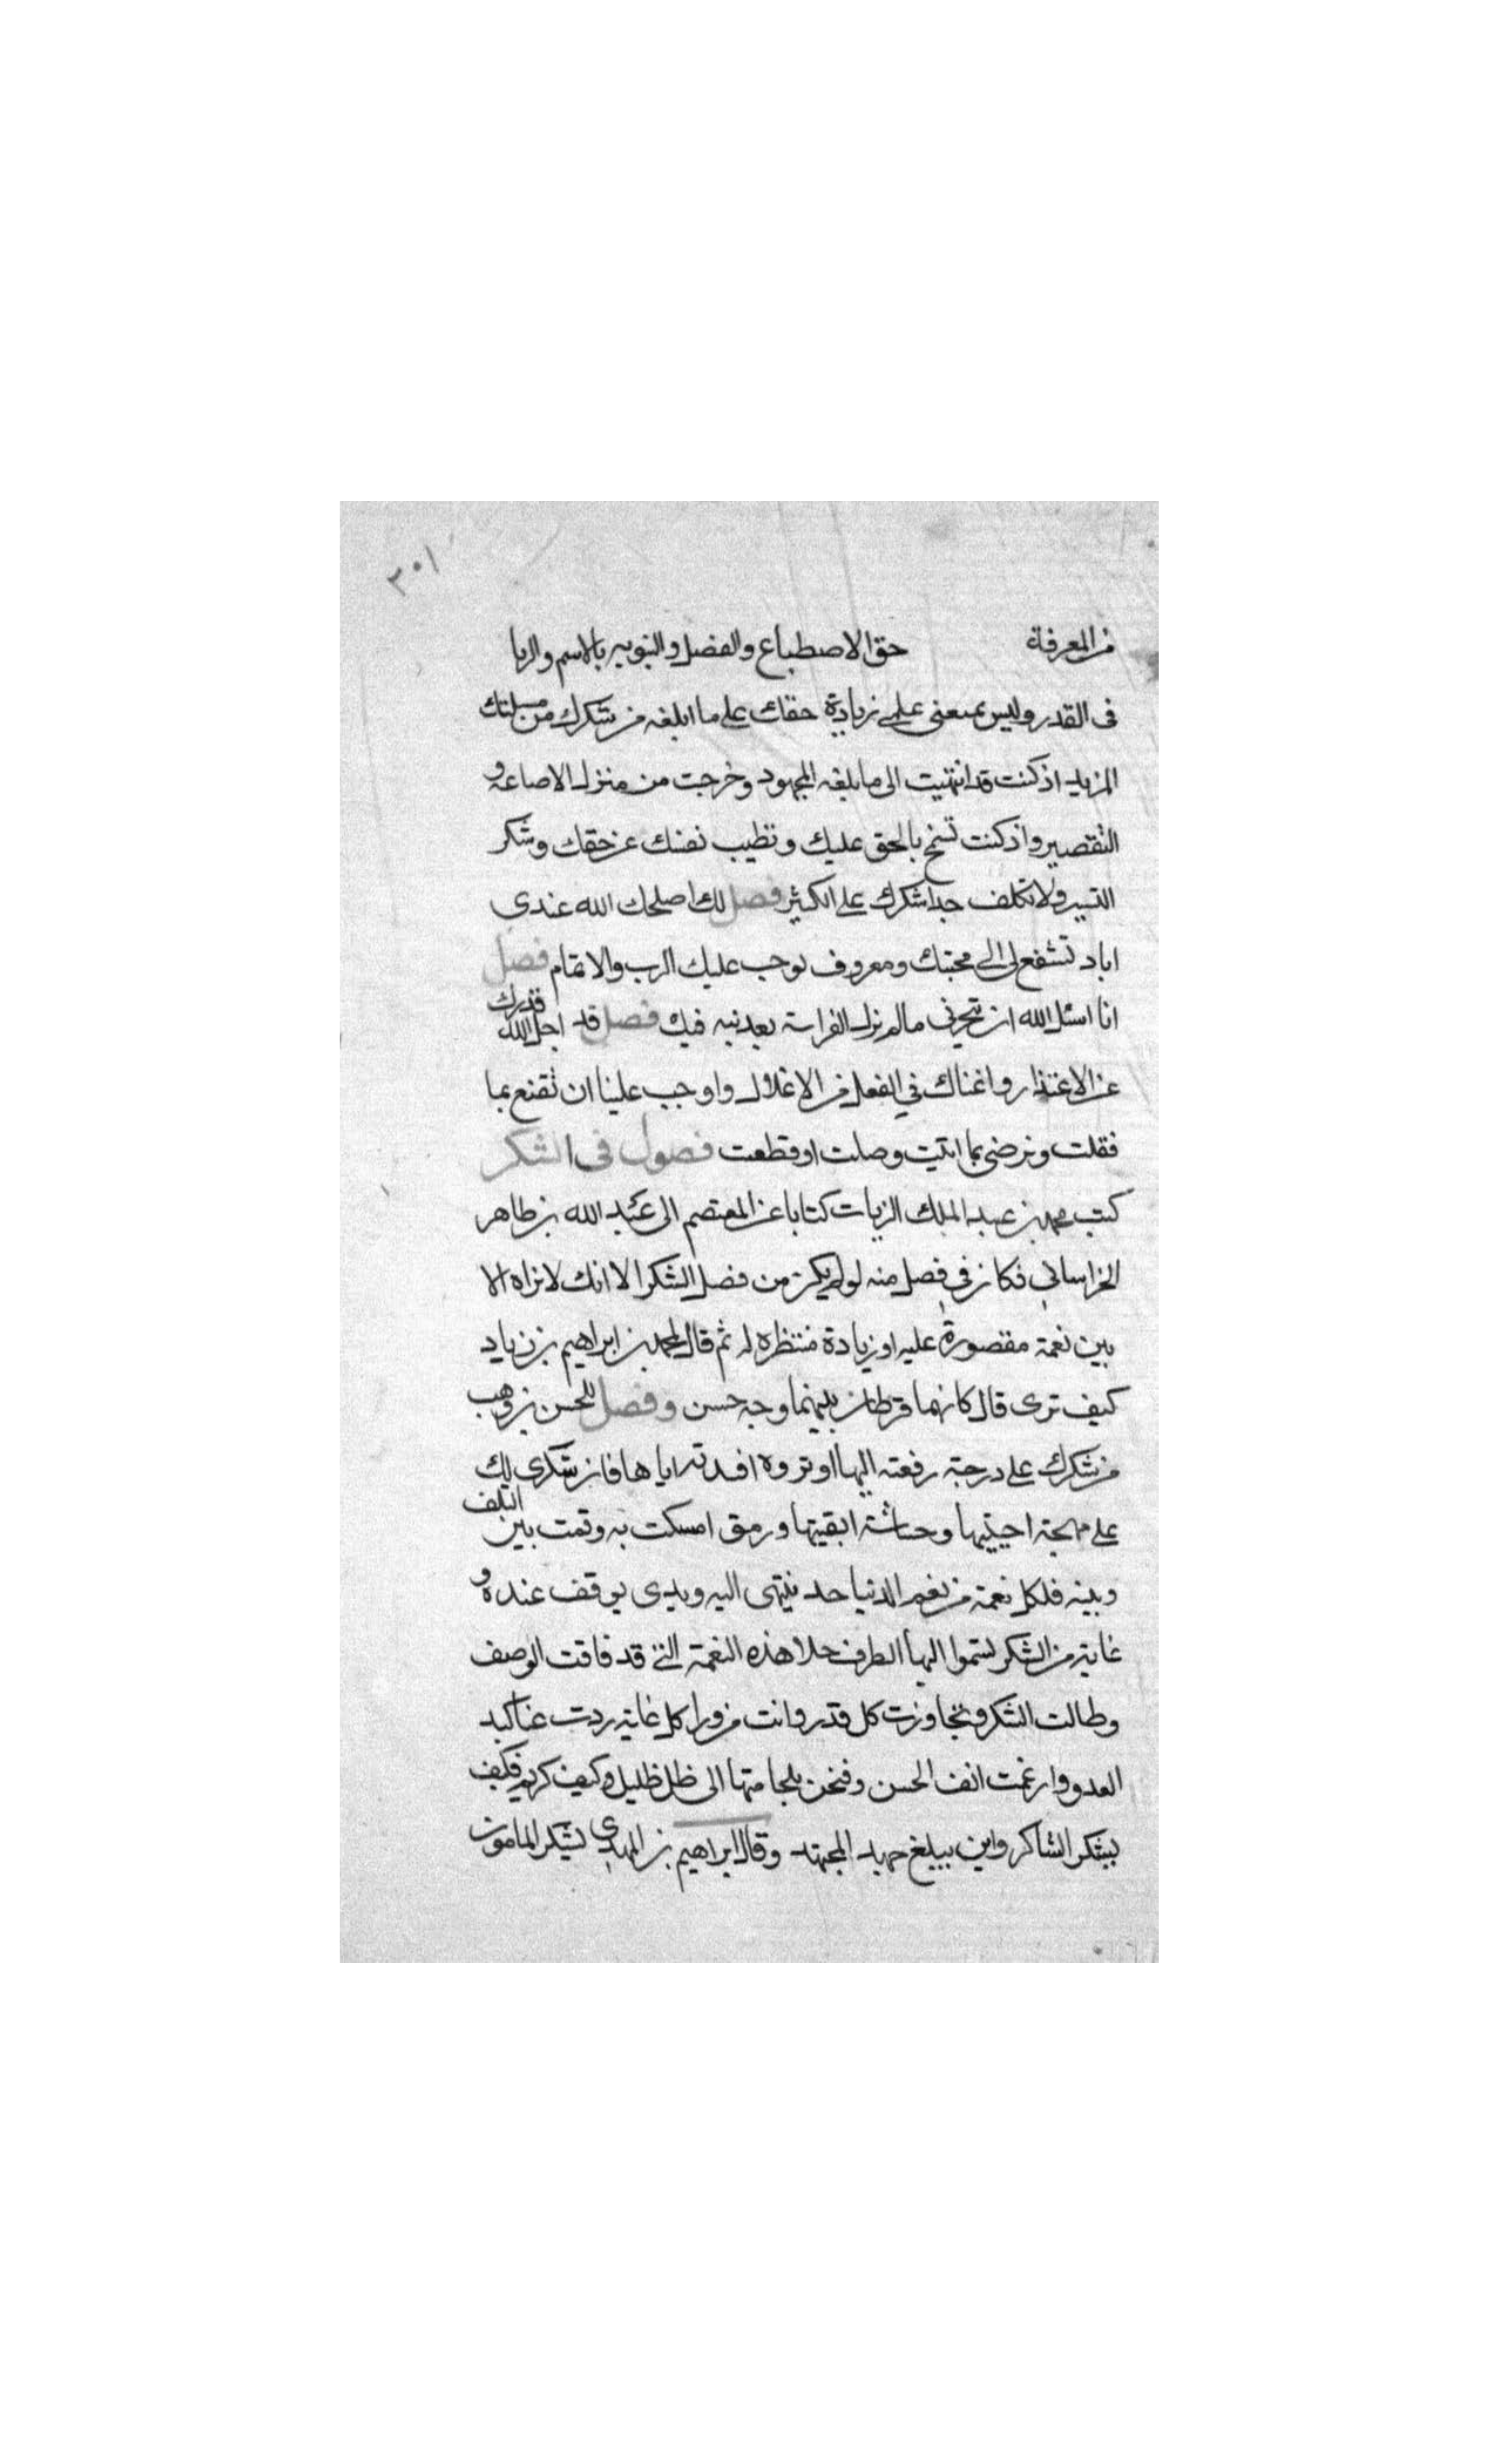 ٣٠١
من المعرفة حق الاصطباع والفضل والتنويه بالاسم والربا
فى القدر وليس يمنعنى علمى زيادة حقك على ما ابلغه من شكرك من مسلتك
المزيد اذ كنت قد انتهيت الى ما بلغه المجهود وخرجت من منزلة الاضاعة و
التقصير واذ كنت تسنح بالحق عليك وتطيب نفسك عن حقك وشكر
اليسير ولا تكلف جدا شكرك على الكثير فصل لك اصلحك الله عندى
اياد تشفع لى الى محبتك ومعروف يوجب عليك الرب والاتمام فصل
انا اسئل الله ان ينجزنى ما لم تزل الفراسة بعد نيه فيك فصل قد اجل الله قدرك
عن الاعتذار واغناك فى الفعل من الاغلال واوجب علينا ان نقنع بما
فقلت ونرضى بما اتيت وصلت او قطعت فصول فى الشكر
كتب محمد بن عبد الملك الزيات كتابا عن المعتصم الى عبد الله بن طاهر
الخراسانى فكان فى فصل منه لو لم يكن من فضل الشكر الا انك لا تراه الا
بين نعمة مقصورة عليه او زيادة منتظره له ثم قال لمحمد بن ابراهيم بن زياد
كيف ترى قال كانهما قرطان بينهما وجه حسن وفصل للحسن بن وهب
من شكرك على درجة رفعته اليها او ثروه افدته اياها فان شكرى لك
على مهجة احييتها وحشاشة ابقيتها ورمق امسكت به وقمت بين التلف
وبينه فلكل نعمة من نعم الدنيا حد ينتهى اليه ويدى يوقف عنده و
غاية من الشكر يسموا اليها الطرف خلا هذه النعمة التى قد فاقت الوصف
وطالت الشكر وتجاوزت كل قدر وانت من وراء كل غاية ردت عنا كيد
العدو وارغمت انف الحسن ونحن نلجا منها الى ظل ظليل وكنف كريم فكيف
يشكر الشاكر واين يبلغ جهد المجتهد وقال ابراهيم بن المهدى يشكر المامون